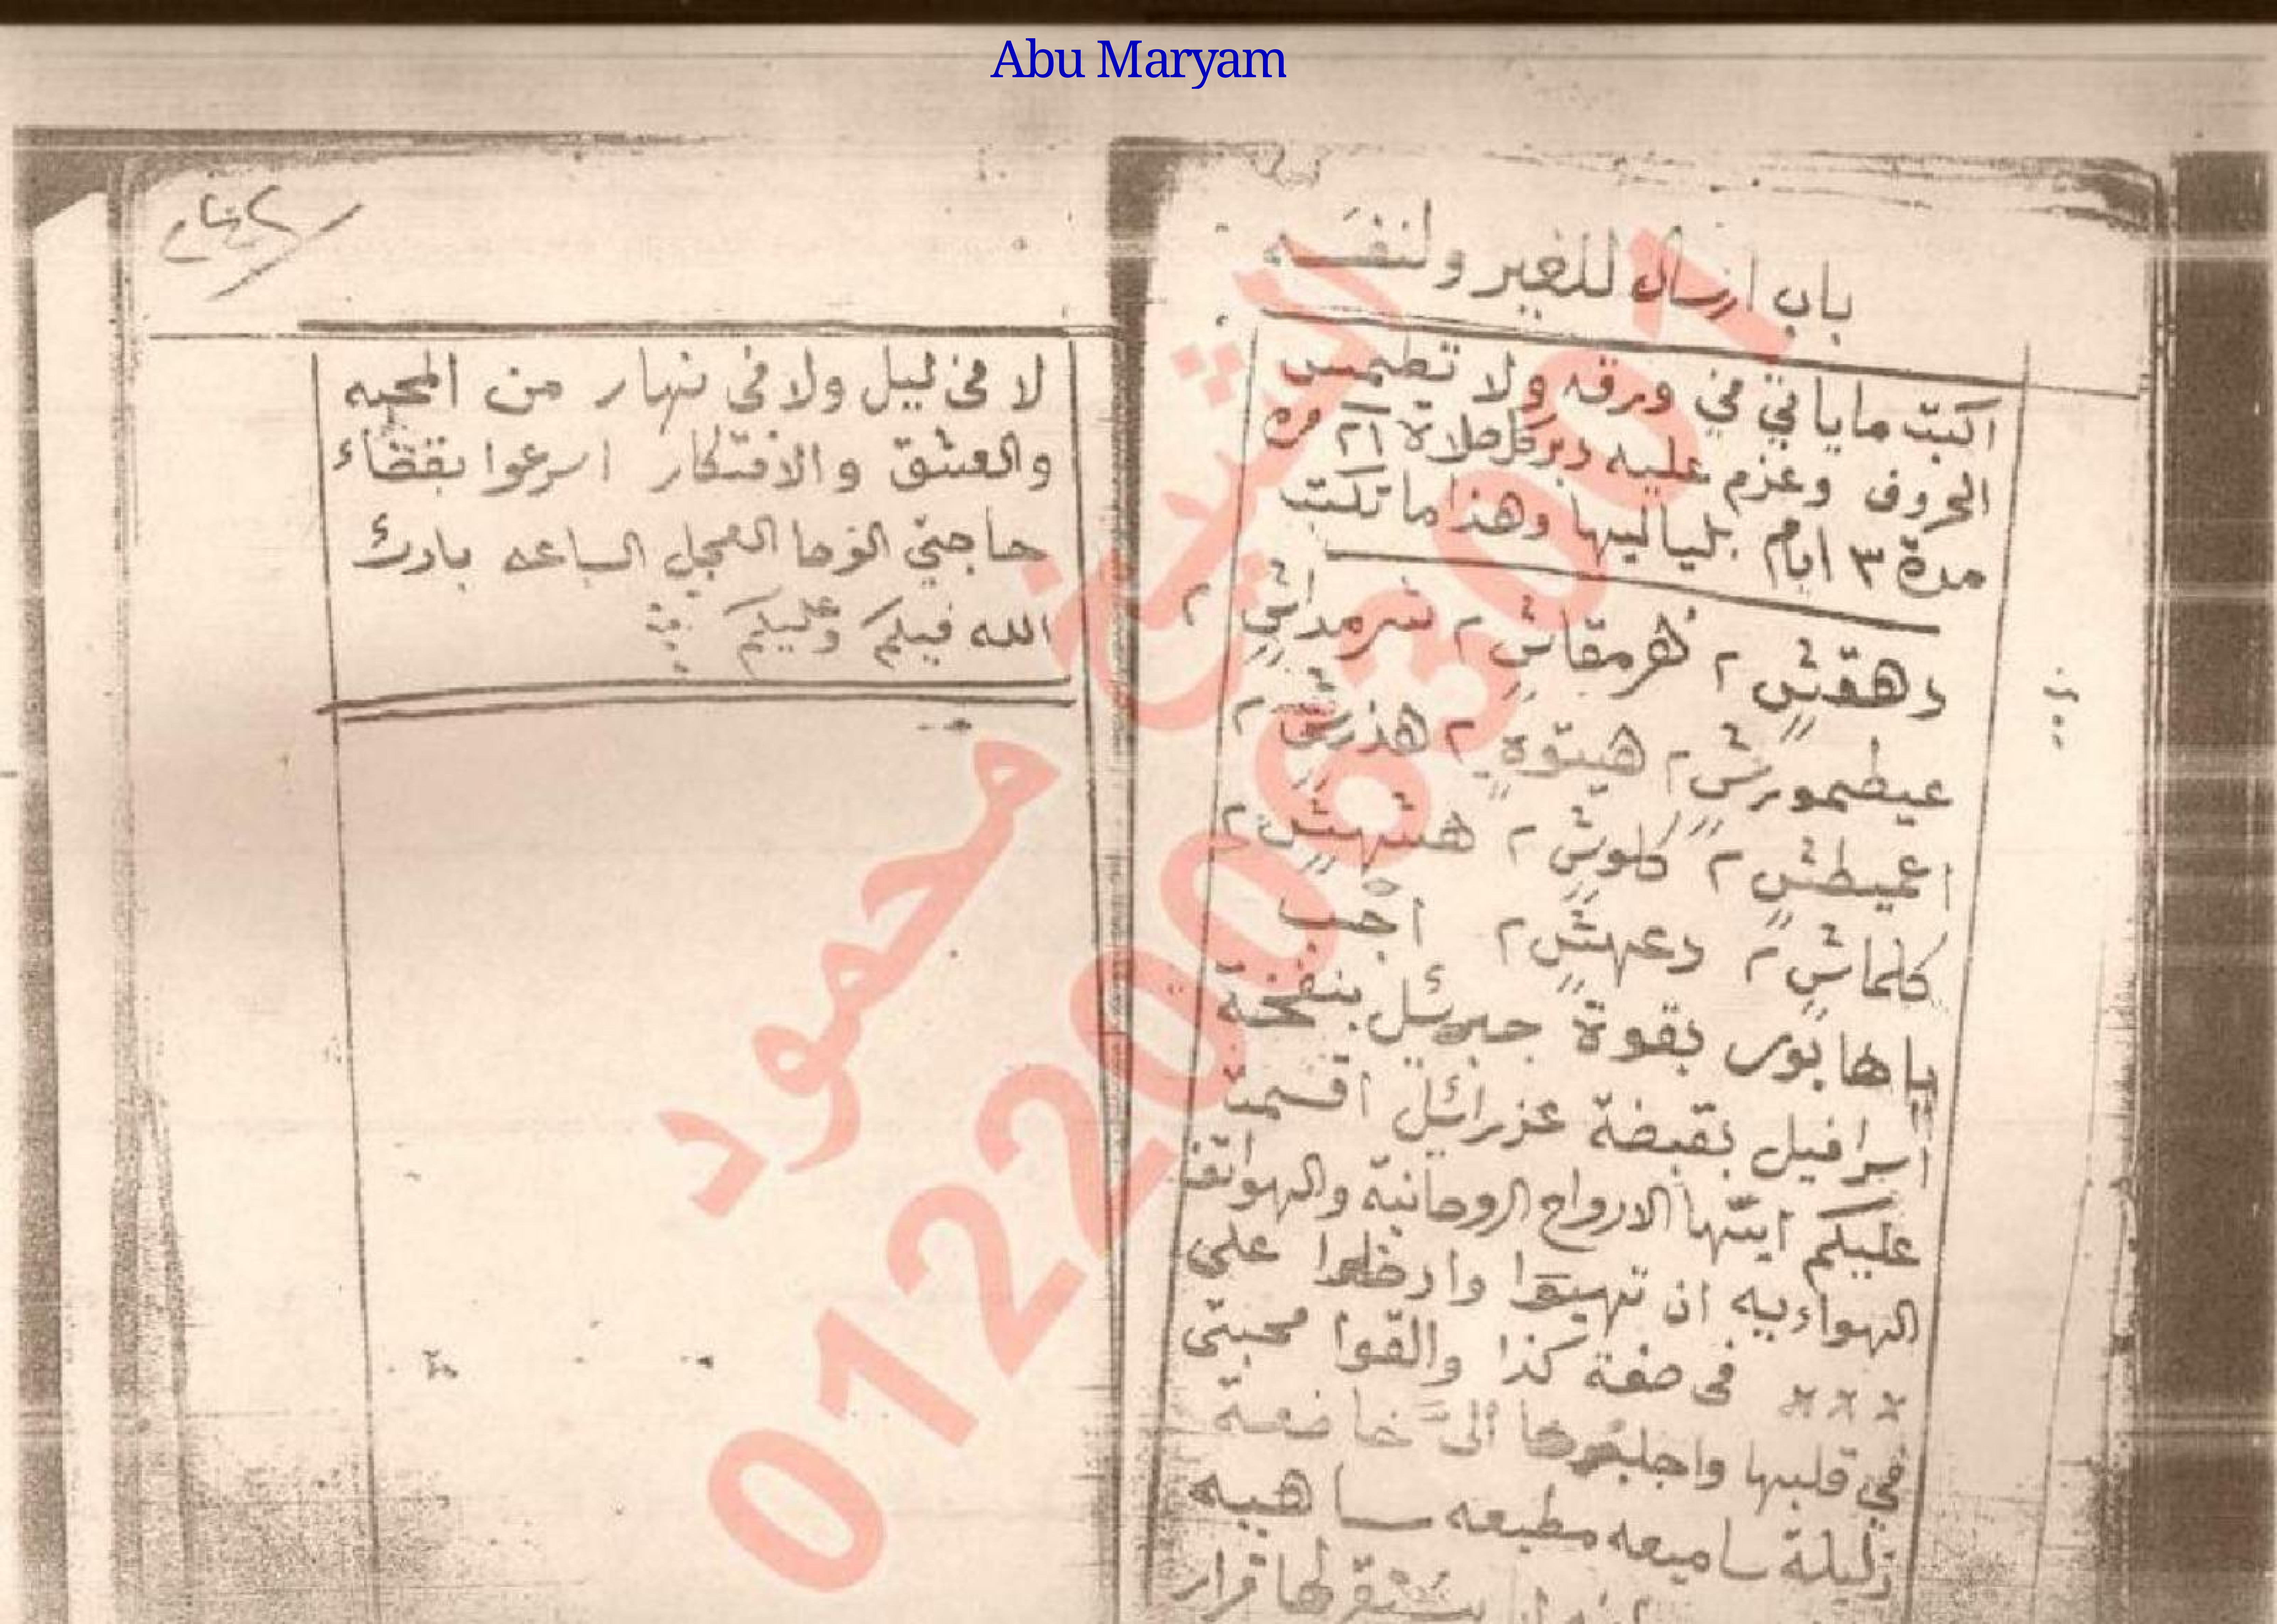 Abu Maryam
باب ارسال للغير ولنفسه
اكتب ماياتي في ورقه ولا تطمس
الحروف وعزم عليه دبر كل صلاة ٢١ مره
مدة ٣ ايام بلياليها وهذا ما تكتب
دهقش ٢ هرمقاش ٢ شرمداش ٢
عيطمورش ٢ هيتوة ٢ هذرش ٢
اعميطش ٢ كلوش ٢ هشهش ٢
كلماش ٢ دعهش ٢ اجب
ياهابور بقوة جبرئل بنفخة
اسرافيل بقبضة عزرائيل اقسمت
عليكم ايتها الارواح الروحانية والهواتف
الهواءييه ان تهيقوا وادخلوا على
××× في صفة كذا والقوا محبتى
في قلبها واجلبوها الىَّ خاضعة
ذليلة ساميعه مطيعه ساهيه
يستقر لها قرار
لا فى ليل ولا فى نهار من المحبه
والعشق والافتكار اسرعوا بقضاء
حاجتي الوحا العجل الساعه بارك
الله فيكم وعليكم
الشيخ محمود
01220063001